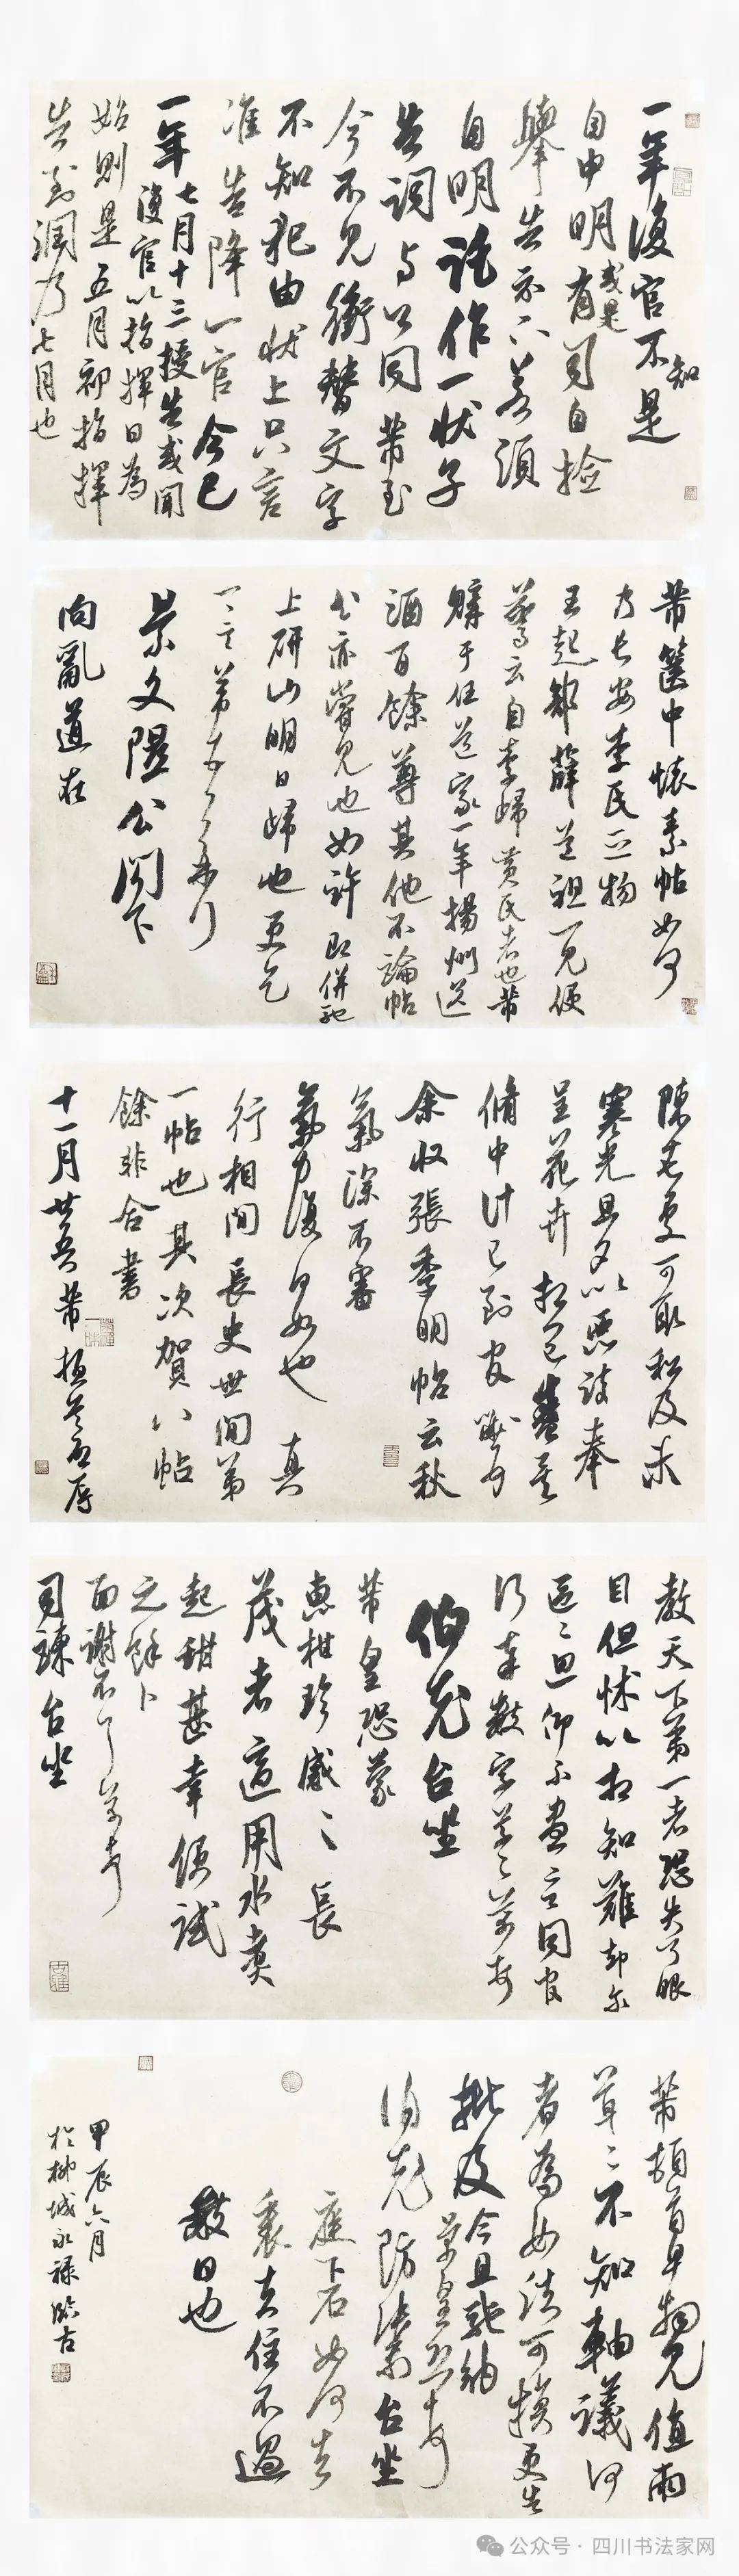 一年復官不知是
自申明或是有司自撿
舉告示下若須
自明託作一狀子
告詞与公同芾至
今不見衝替文字
不知犯由狀上只言
准告降一官今已
一年七月十三授告或聞
復官以指揮日為
始則是五月初指揮
告到潤乃七月也
芾箧中懷素帖如何
乃長安李氏之物
王起部薛道祖一見便
驚云自李歸黃氏者也芾
購于任道家一年揚州送
酒百餘尊其他不論帖
公亦嘗見也如許即併馳
上研山明日歸也更乞
一言芾頓首再拜
景文隰公閣下
向亂道在
陳十七處可取租及未
寒光且夕以惡詩奉
呈花卉想已盛矣
脩中計已到官
余收張季明帖云秋
氣深不審
氣力復何如也真
行相間長史世間第
一帖也其次賀八帖
餘非合書
十一月廿五芾
教天下第一者恐失了眼
目但怵以相知難却尔
區區思仰不盡言同官
行奉數字草草芾頓首
伯充台坐
芾皇恐蒙
惠柑珍感感長
茂者適用水煮
起甜甚幸便試
之餘卜
面謝不一芾頓首
司諫台坐
芾頓首早拜見值雨
草草不知軸議何
者為如請可損更告
批及今且馳納芾皇恐頓首
伯充防禦台坐
庭下石如何去
裹去住不過
數日也
甲辰六月
於柳城永祿臨古
公众号·四川书法家网